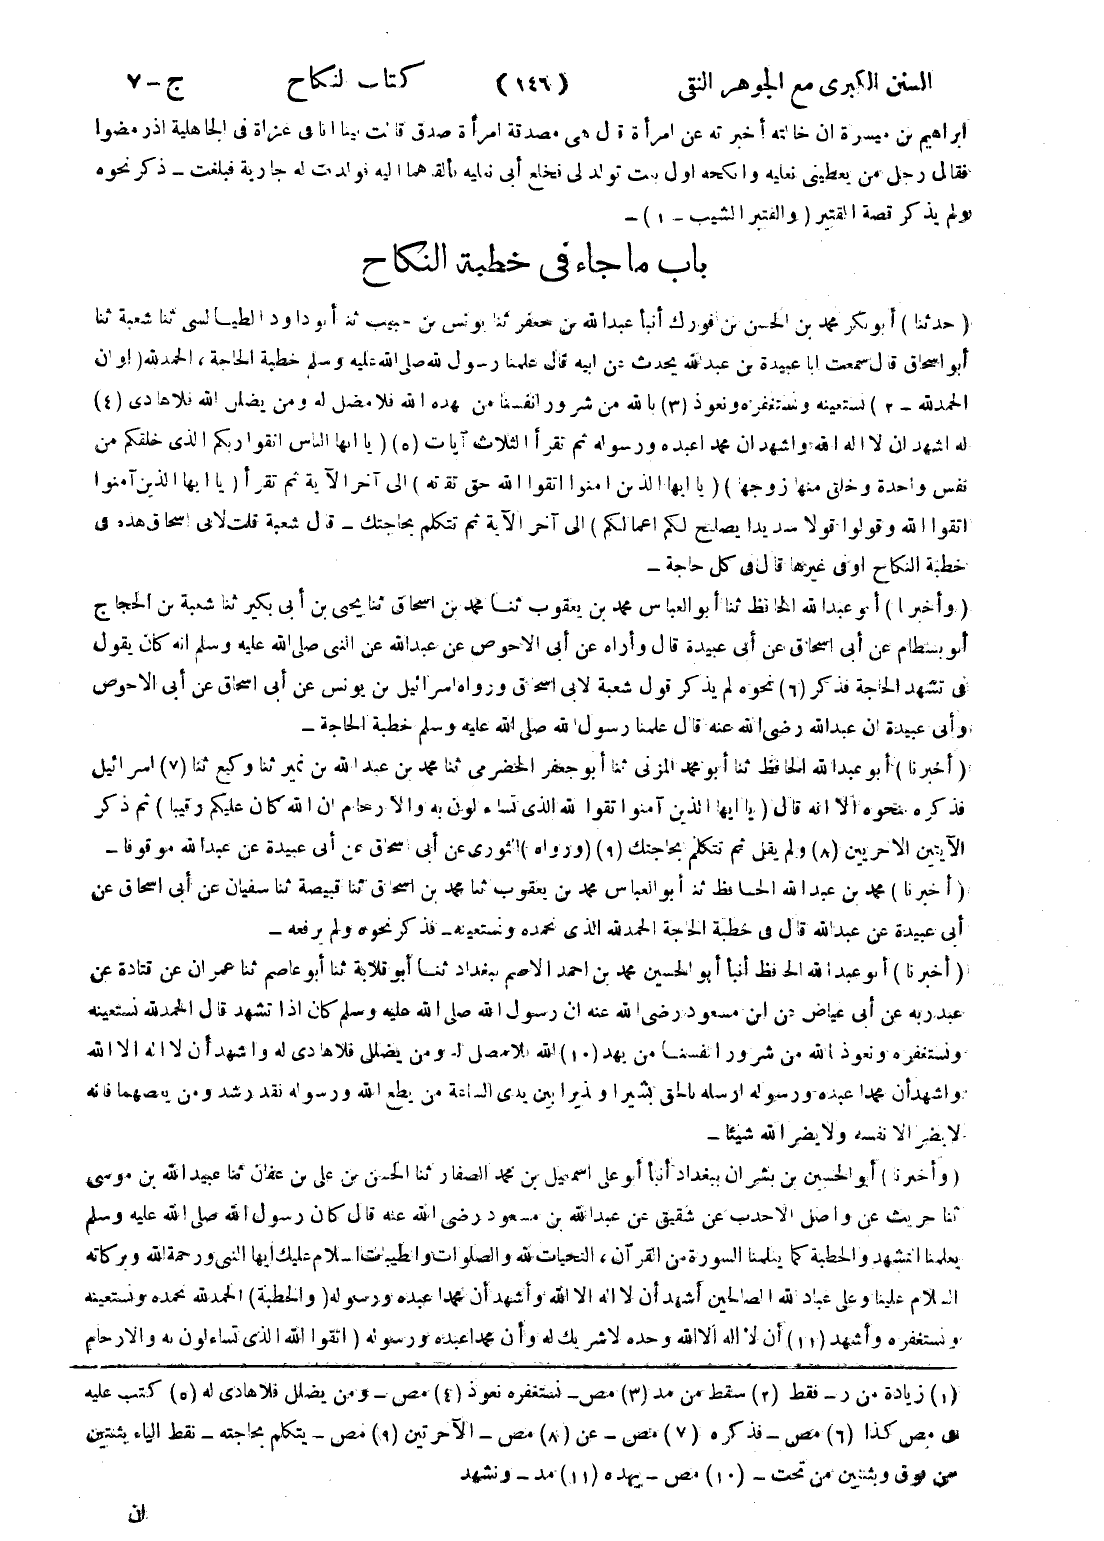 السنن الكبرى مع الجوهر النقى (١٤٦) كتاب لنكاح ج-٧
ابراهيم بن ميسرة ان خالته أخبرته عن امرأة قال هى مصدقة امرأة صدق قالت بينا انا فى غزاة فى الجاهلية اذ رمضوا
فقال رجل من يعطينى نعليه وانكحه اول بنت تولد لى فخلع أبى نعليه فألقاهما اليه فولدت له جارية فبلغت - ذكر نحوه
ولم يذكر قصة القتير (والقتير الشيب - ١) -
باب ما جاء فى خطبة النكاح
(حدثنا) أبو بكر محمد بن الحسن بن فورك أنبأ عبد الله بن جعفر ثنا يونس بن حبيب ثنا أبو داود الطيالسى ثنا شعبة ثنا
أبو اسحاق قال سمعت ابا عبيدة بن عبد الله يحدث عن ابيه قال علمنا رسول الله صلى الله عليه وسلم خطبة الحاجة، الحمد لله (او ان
الحمد لله - ٢) نستعينه ونستغفره ونعوذ (٣) بالله من شرور انفسنا من يهده الله فلا مضل له ومن يضلل الله فلا هادى (٤)
له اشهد ان لا اله الا الله واشهد ان محمدا عبده ورسوله ثم تقرأ الثلاث آيات (٥) (يا ايها الناس اتقوا ربكم الذى خلقكم من
نفس واحدة وخلق منها زوجها) (يا ايها الذين امنوا اتقوا الله حق تقاته) الى آخر الآية ثم تقرأ (يا ايها الذين آمنوا
اتقوا الله وقولوا قولا سديدا يصلح لكم اعمالكم) الى آخر الآية ثم تتكلم بحاجتك - قال شعبة قلت لابى اسحاق هذه فى
خطبة النكاح او فى غيرها قال فى كل حاجة -
(وأخبرنا) أبو عبد الله الحافظ ثنا أبو العباس محمد بن يعقوب ثنا محمد بن اسحاق ثنا يحيى بن أبى بكير ثنا شعبة بن الحجاج
أبو بسطام عن أبى اسحاق عن أبى عبيدة قال وأراه عن أبى الاحوص عن عبد الله عن النبى صلى الله عليه وسلم انه كان يقول
فى تشهد الحاجة فذكر (٦) نحوه لم يذكر قول شعبة لابى اسحاق ورواه اسرائيل بن يونس عن أبى اسحاق عن أبى الاحوص
وأبى عبيدة ان عبد الله رضى الله عنه قال علمنا رسول الله صلى الله عليه وسلم خطبة الحاجة -
(أخبرنا) أبو عبد الله الحافظ ثنا أبو محمد المزنى ثنا أبو جعفر الحضرمى ثنا محمد بن عبد الله بن نمير ثنا وكيع ثنا (٧) اسرائيل
فذكره بنحوه ألا انه قال (يا ايها الذين آمنوا اتقوا الله الذى تساءلون به والارحام ان الله كان عليكم رقيبا) ثم ذكر
الآيتين الاخريين (٨) ولم يقل ثم تتكلم بحاجتك (٩) (ورواه) الثورى عن أبى اسحاق عن أبى عبيدة عن عبد الله موقوفا -
(أخبرنا) محمد بن عبد الله الحافظ ثنا أبو العباس محمد بن يعقوب ثنا محمد بن اسحاق ثنا قبيصة ثنا سفيان عن أبى اسحاق عن
أبى عبيدة عن عبد الله قال فى خطبة الحاجة الحمد لله الذى نحمده ونستعينه - فذكر نحوه ولم يرفعه -
(أخبرنا) أبو عبد الله الحافظ أنبأ أبو الحسين محمد بن احمد الاصم ببغداد ثنا أبو قلابة ثنا أبو عاصم ثنا عمران عن قتادة عن
عبد ربه عن أبى عياض عن ابن مسعود رضى الله عنه ان رسول الله صلى الله عليه وسلم كان اذا تشهد قال الحمد لله نستعينه
ونستغفره ونعوذ بالله من شرور انفسنا من يهد (١٠) الله فلا مضل له ومن يضلل فلا هادى له واشهد أن لا اله الا الله
واشهد أن محمدا عبده ورسوله ارسله بالحق بشيرا ونذيرا بين يدى الساعة من يطع الله ورسوله فقد رشد ومن يعصهما فانه
لا يضر الا نفسه ولا يضر الله شيئا -
(وأخبرنا) أبو الحسين بن بشران ببغداد أنبأ أبو على اسمعيل بن محمد الصفار ثنا الحسن بن على بن عفان ثنا عبيد الله بن موسى
ثنا حريث عن واصل الاحدب عن شقيق عن عبد الله بن مسعود رضى الله عنه قال كان رسول الله صلى الله عليه وسلم
يعلمنا التشهد والخطبة كما يعلمنا السورة من القرآن، التحيات لله والصلوات والطيبات السلام عليك ايها النبى ورحمة الله وبركاته
السلام علينا وعلى عباد الله الصالحين أشهد أن لا اله الا الله وأشهد أن محمدا عبده ورسوله (والخطبة) الحمد لله نحمده ونستعينه
ونستغفره وأشهد (١١) أن لا اله الا الله وحده لا شريك له وأن محمدا عبده ورسوله (اتقوا الله الذى تساءلون به والارحام
(١) زيادة من ر - فقط (٢) سقط من مد (٣) مص - نستغفره نعوذ (٤) مص - ومن يضلل فلا هادى له (٥) كتب عليه
فى مص كذا (٦) مص - فذكره (٧) مص - عن (٨) مص - الآخرتين (٩) مص - يتكلم بحاجته - نقط الياء بثنتين
من فوق وبثنتين من تحت - (١٠) مص - يهده (١١) مد - ونشهد
ان